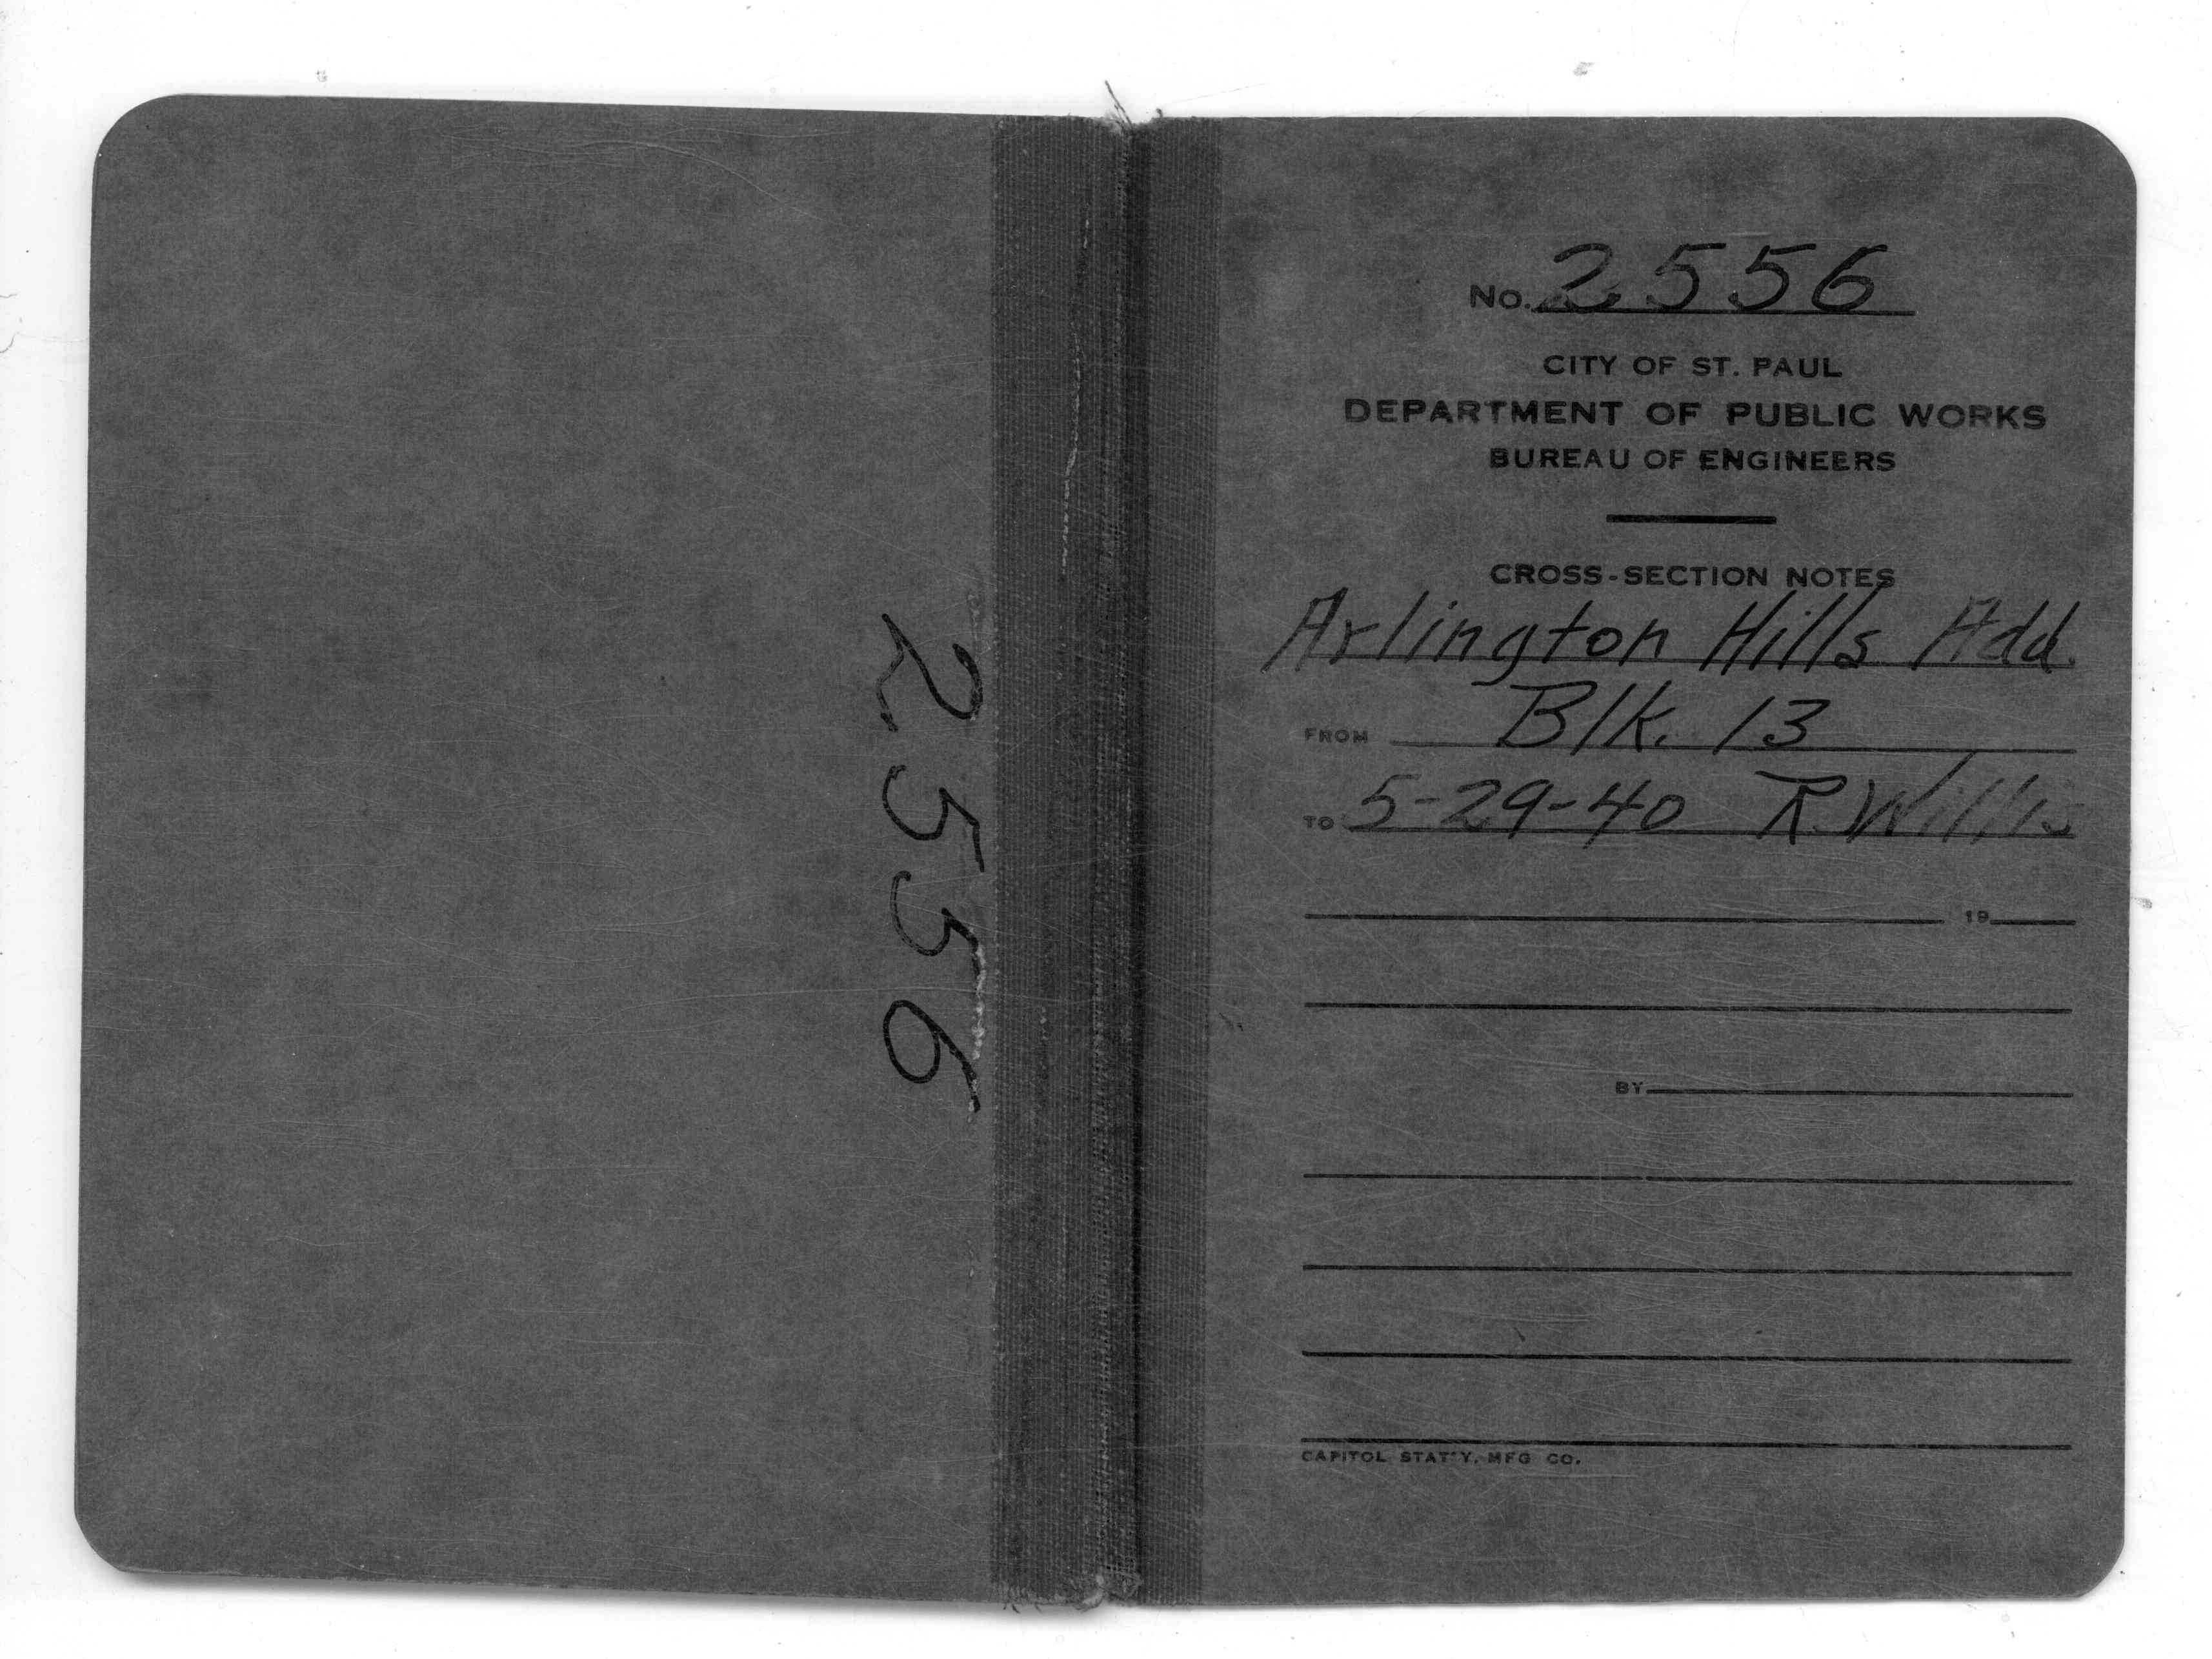 2556
No. 2556
CITY OF ST. PAUL
DEPARTMENT OF PUBLIC WORKS
BUREAU OF ENGINEERS
CROSS-SECTION NOTES
Arlington Hills Add.
FROM Blk. 13
TO 5-29-40 R. Willis
19
BY
CAPITOL STAT'Y. MFG CO.